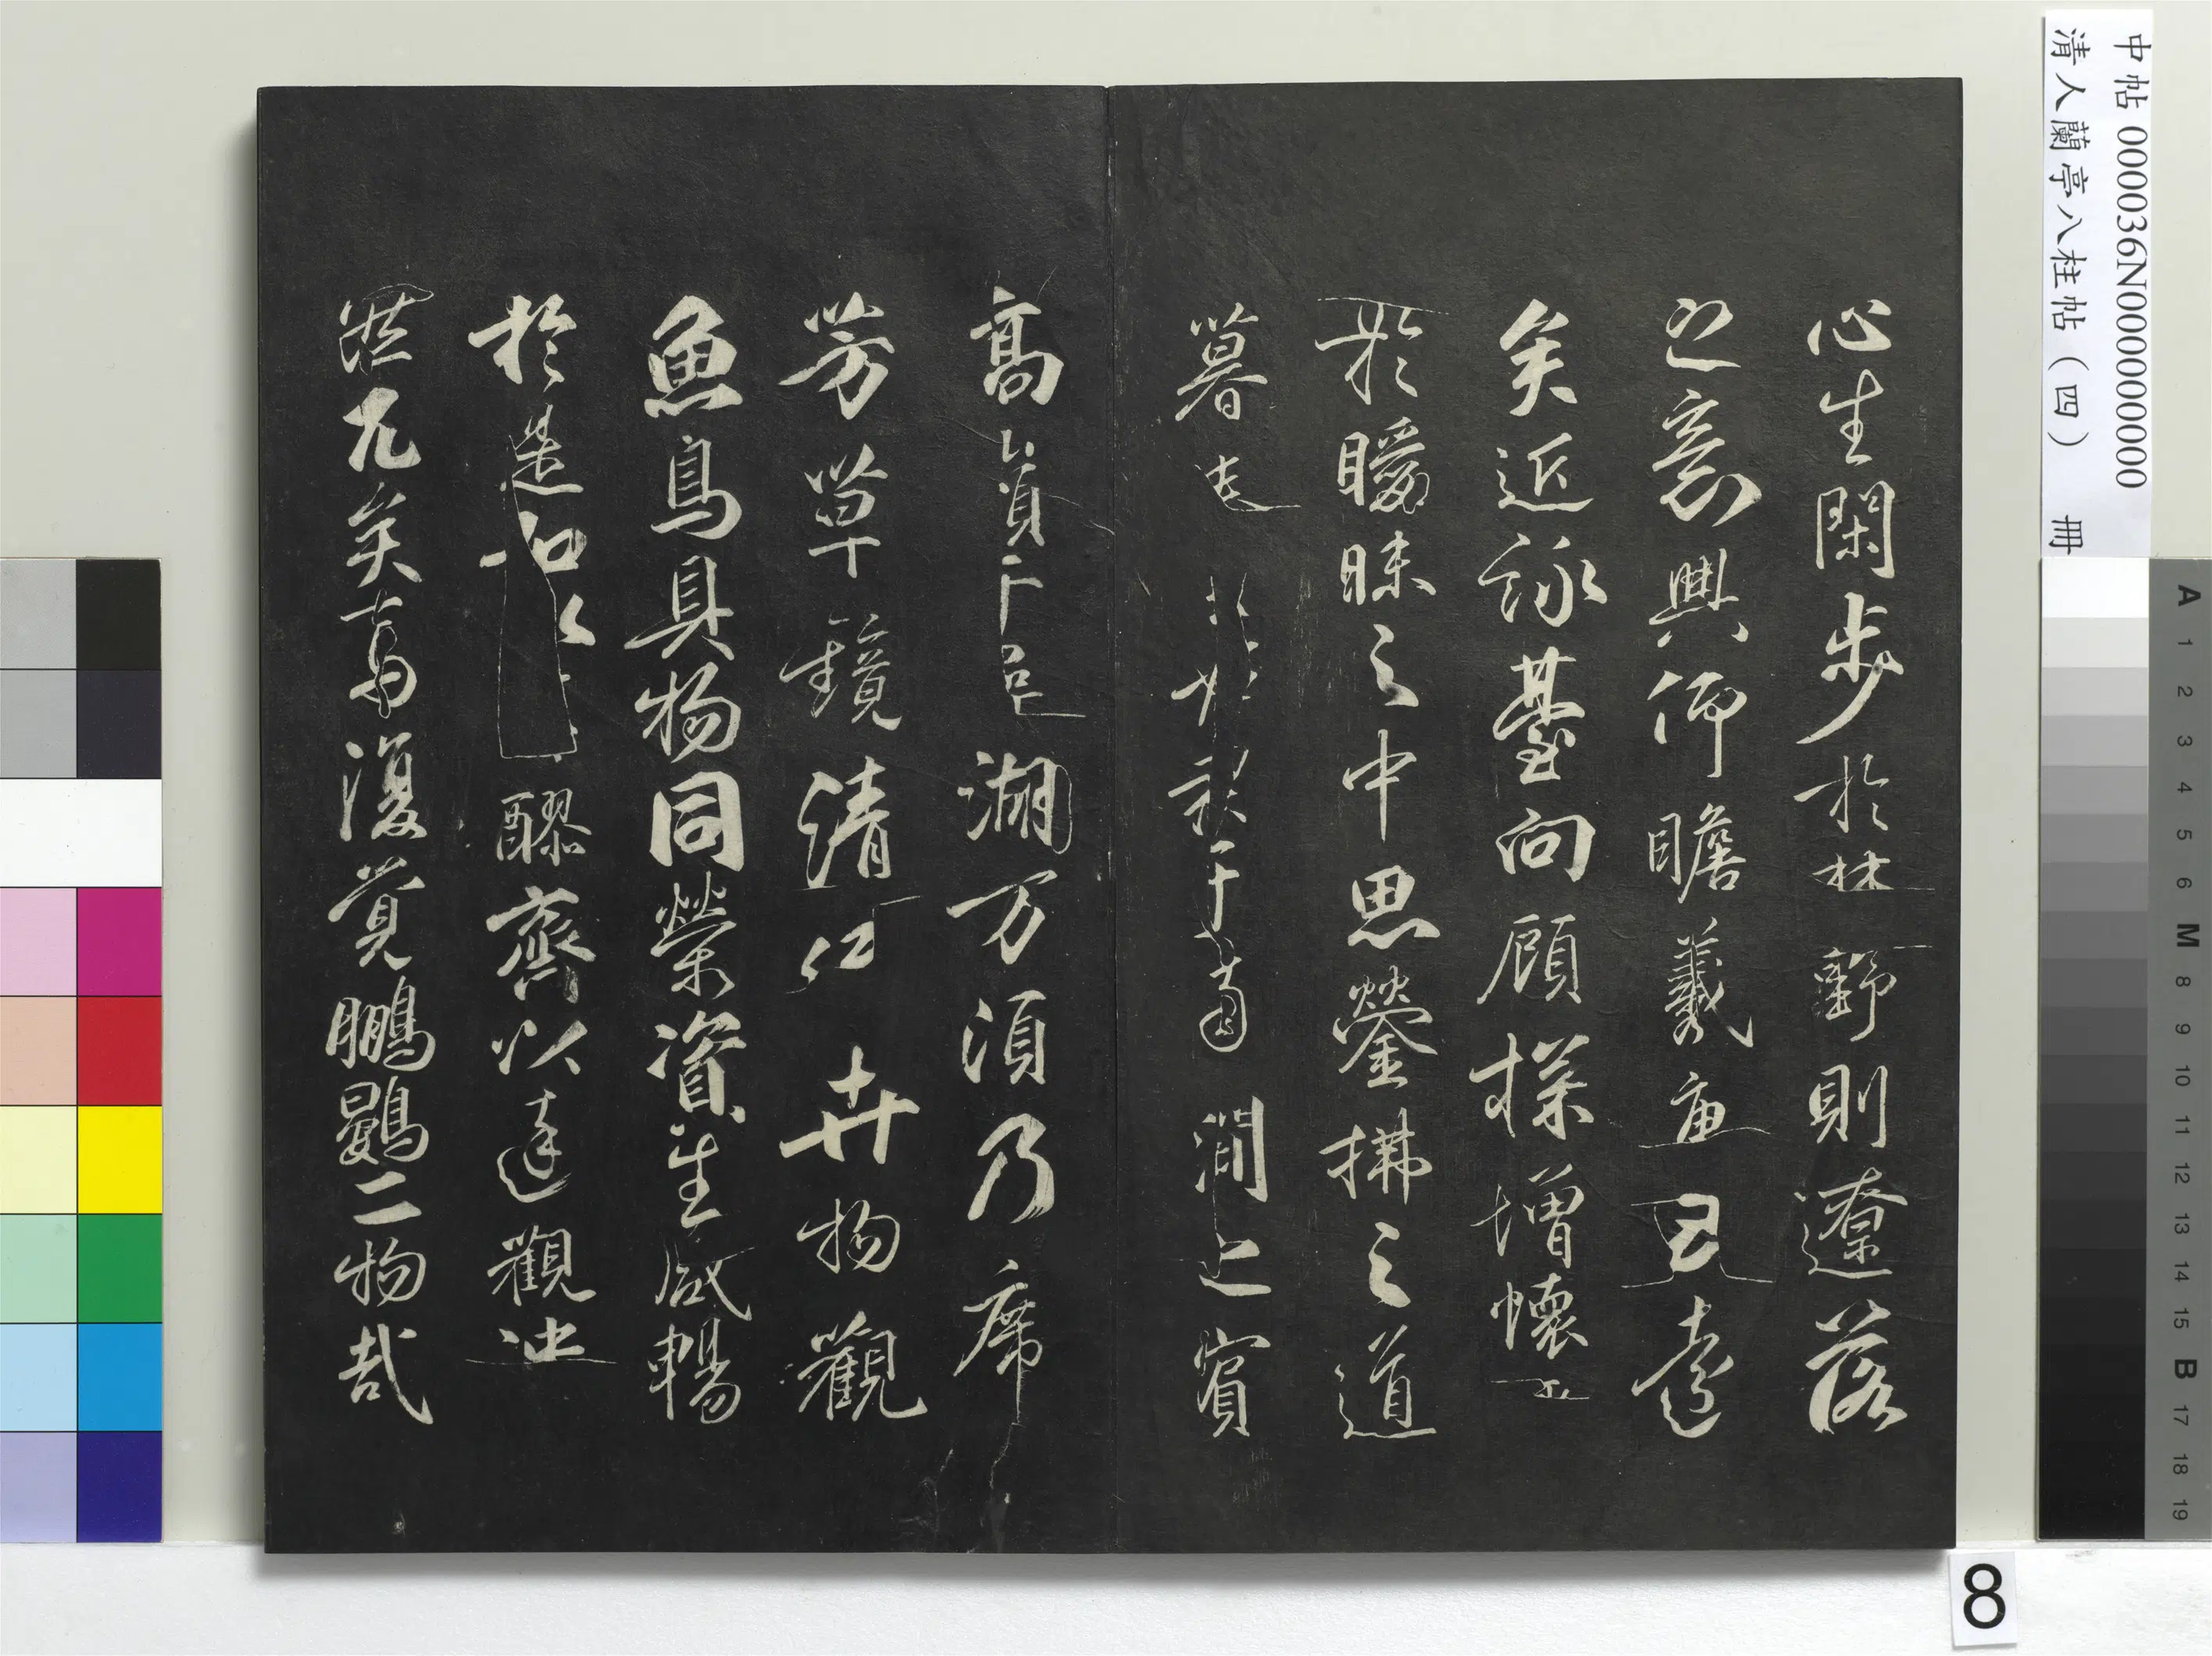 中帖 000036N000000000
清人蘭亭八柱帖（四） 冊
心生閑步於林野則遼落
之意興仰瞻羲唐已遠
矣近詠臺向顧探增懷
於曖昧之中思瑩拂之道
暮禊于南澗之賓
高湖万湏乃席
芳草鏡清卉物觀
魚鳥具物同榮資生咸暢
於是和以醪齊以達觀
兀矣焉復覺鵬鷃二物哉
8
A 1 2 3 4 5 6 M 8 9 10 11 12 13 14 15 B 17 18 19